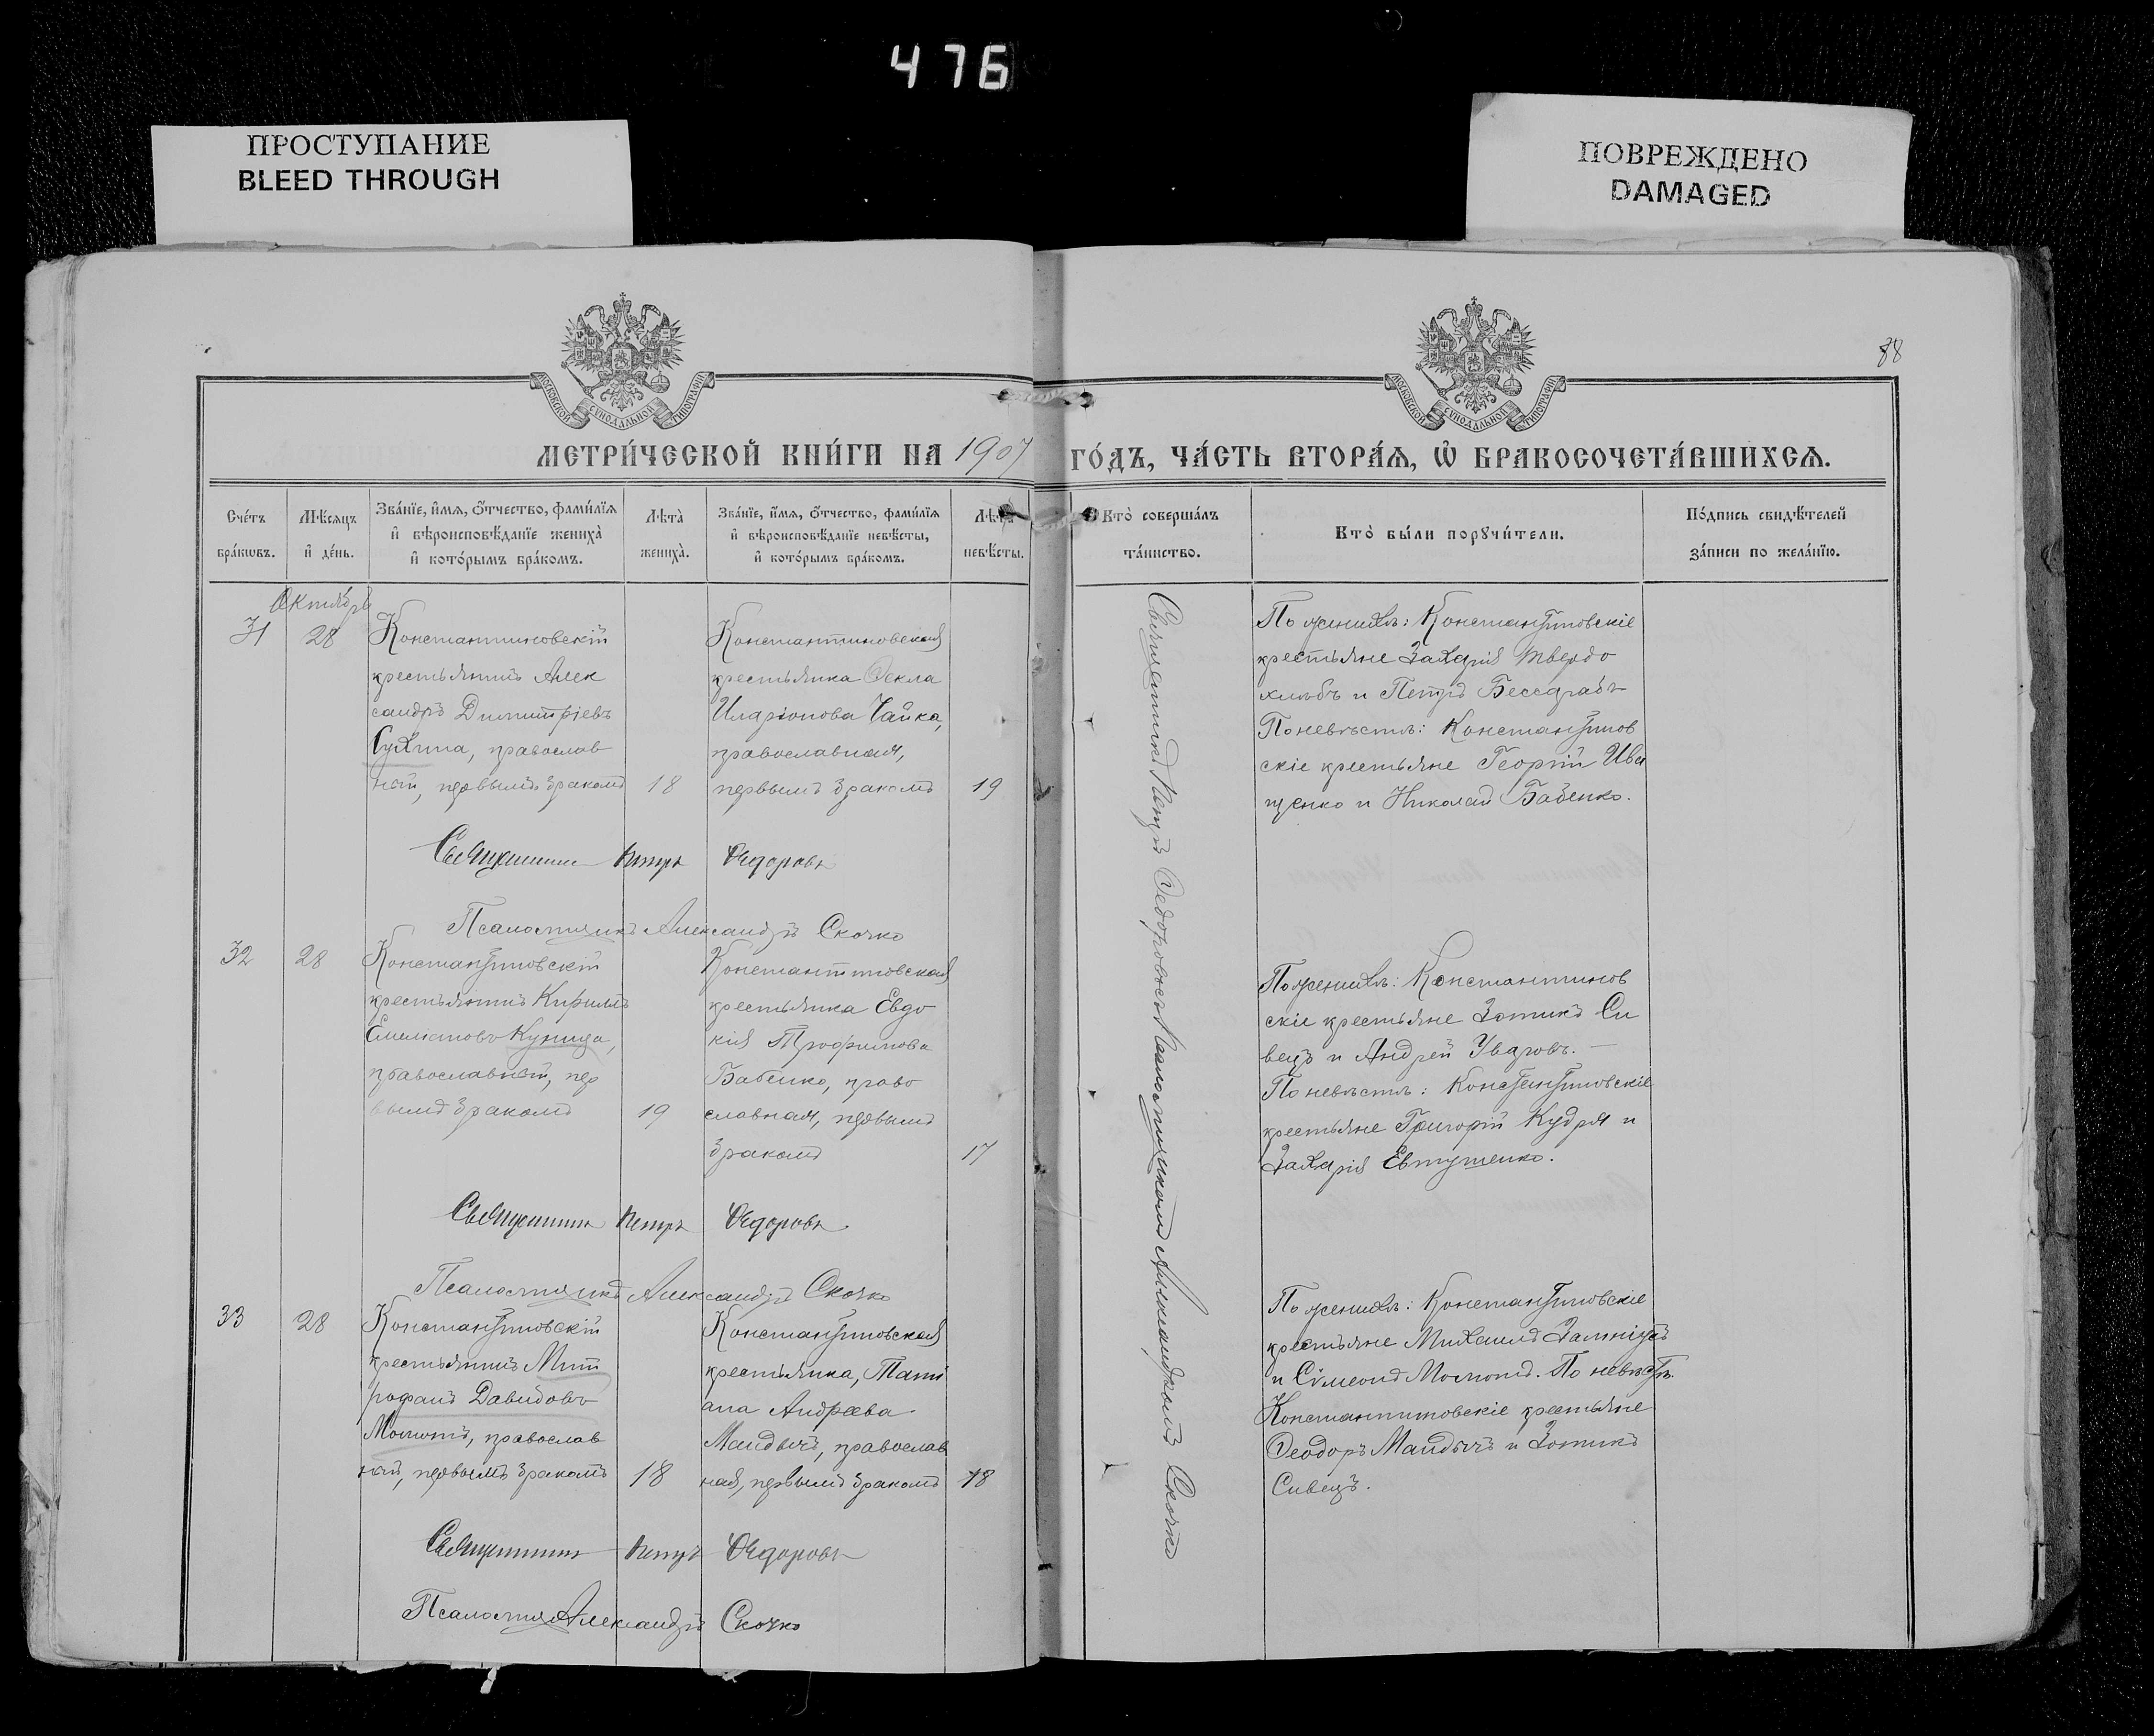 476
ПРОСТУПАНИЕ
BLEED THROUGH
ПОВРЕЖДЕНО
DAMAGED
88
МОСКОВСКОЙ СѴНОДАЛЬНОЙ ТИПОГРАФІИ
МОСКОВСКОЙ СѴНОДАЛЬНОЙ ТИПОГРАФІИ
МЕТРИ́ЧЕСКОЙ КНИ́ГИ НА 1907 ГО́ДЪ, ЧА́СТЬ ВТОРА́Я, Ѡ҆ БРАКОСОЧЕТА́ВШИХСЯ.
Сче́тъ
бра́кѡвъ.
Мѣ́сяцъ
и҆ де́нь.
Зва́нїе, и҆́мя, ѻ҆́тчество, фами́лїя
и҆ вѣроисповѣ́данїе жениха̀
и҆ кото́рымъ бра́комъ.
Лѣта̀
жениха̀.
Зва́нїе, и҆́мя, ѻ҆́тчество, фами́лїя
и҆ вѣроисповѣ́данїе невѣ́сты,
и҆ кото́рымъ бра́комъ.
Лѣта̀
невѣ́сты.
Кто̀ соверша́лъ
та́инство.
Кто̀ бы́ли порꙋчи́тели.
По́дпись свидѣ́телей
за́писи по жела́нїю.
Октябрь
31
28
Константиновскій
крестьянинъ Алек
сандръ Димитріевъ
Сухина, православ
ный, первымъ бракомъ
18
Константиновская
крестьянка Ѳекла
Иларіонова Чайка,
православная,
первымъ бракомъ
19
По женихѣ: Константиновскіе
крестьяне Захарія Твердо
хлѣбъ и Петръ Бессарабъ
По невѣстѣ: Константинов
скіе крестьяне Георгій Ива
щенко и Николай Бабенко.
Священникъ Петръ Ѳедоровъ
Псаломщикъ Александръ Скочко
32
28
Константиновскій
крестьянинъ Кириллъ
Емеліановъ Куница,
православный, пер
вымъ бракомъ
19
Константиновская
крестьянка Евдо
кія Трофимова
Бабенко, право
славная, первымъ
бракомъ
17
По женихѣ: Константинов
скіе крестьяне Зотикъ Си
вецъ и Андрей Уваровъ.
По невѣстѣ: Константиновскіе
крестьяне Григорій Кудря и
Захарія Евтушенко.
Священникъ Петръ Ѳедоровъ.
Псаломщикъ Александръ Скочко
33
28
Константиновскій
крестьянинъ Мит
рофанъ Давидовъ
Момотъ, православ
ный, первымъ бракомъ
18
Константиновская
крестьянка, Тати
ана Андреева
Мандычъ, православ
ная, первымъ бракомъ
18
По женихѣ: Константиновскіе
крестьяне Михаилъ
и Сѵмеонъ Момотъ. По невѣстѣ.
Константиновскіе крестьяне
Ѳеодоръ Мандычъ и Зотикъ
Сивецъ.
Священникъ Петръ Ѳедоровъ
Псаломщ Александръ Скочко
Священникъ Петръ Ѳедоровъ съ псаломщикомъ Александромъ Скочко